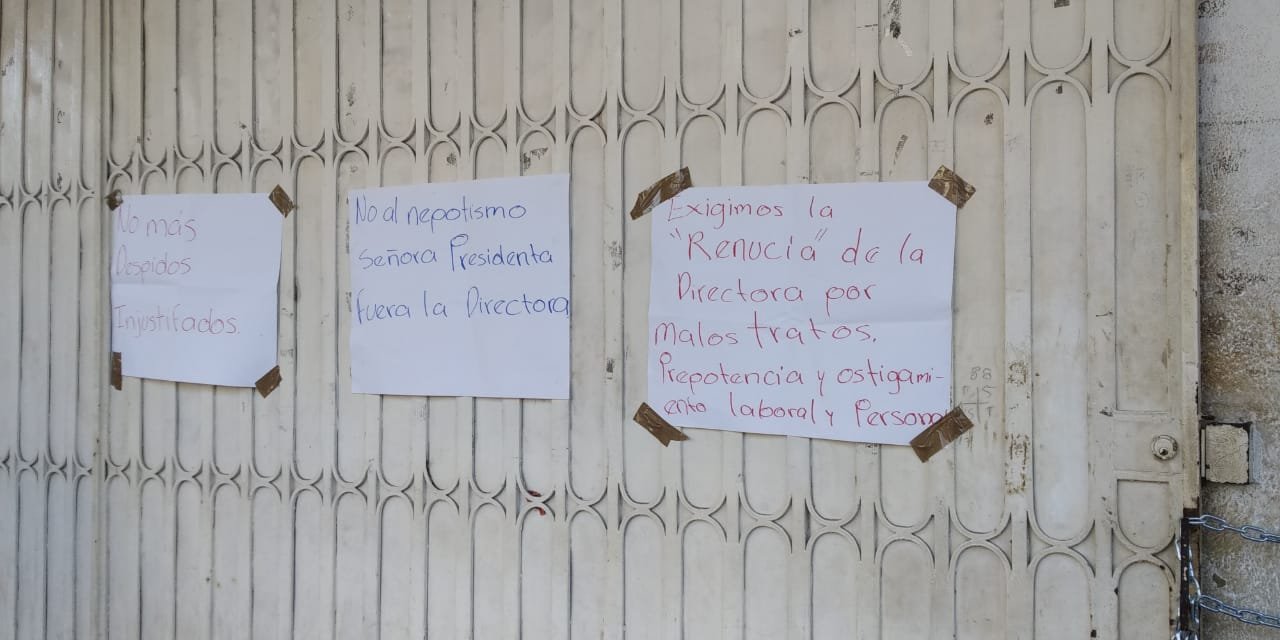 No más
Despidos
Injustifados.
No al nepotismo
señora Presidenta
fuera la Directora
Exigimos la
"Renucia" de la
Directora por
Malos tratos.
Prepotencia y ostigami-
ento laboral y Personal